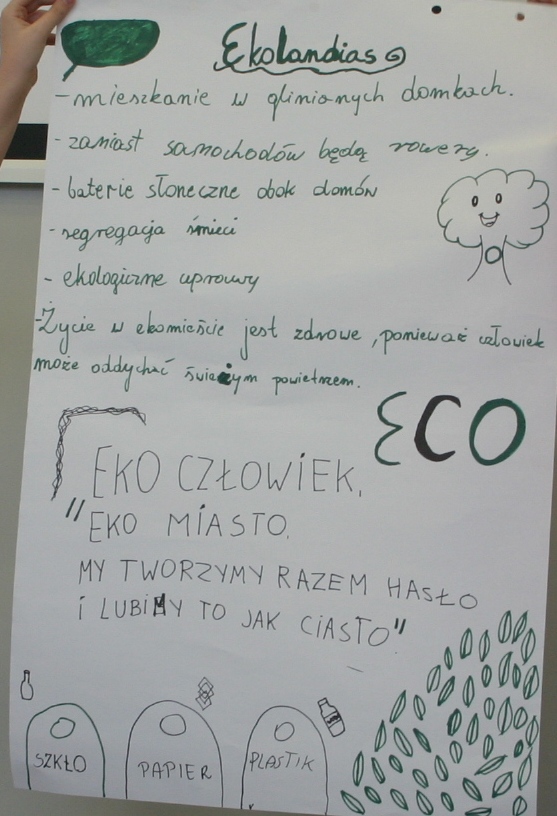 Ekolandias
- mieszkanie w glinianych domkach.
- zamiast samochodów będą rowery.
- baterie słoneczne obok domów
- segregacja śmieci
- ekologiczne uprawy
- Życie w ekomieście jest zdrowe, ponieważ człowiek
może oddychać świeżym powietrzem.
ECO
EKO CZŁOWIEK,
"EKO MIASTO,
MY TWORZYMY RAZEM HASŁO
I LUBIMY TO JAK CIASTO"
SZKŁO
PAPIER
PLASTIK